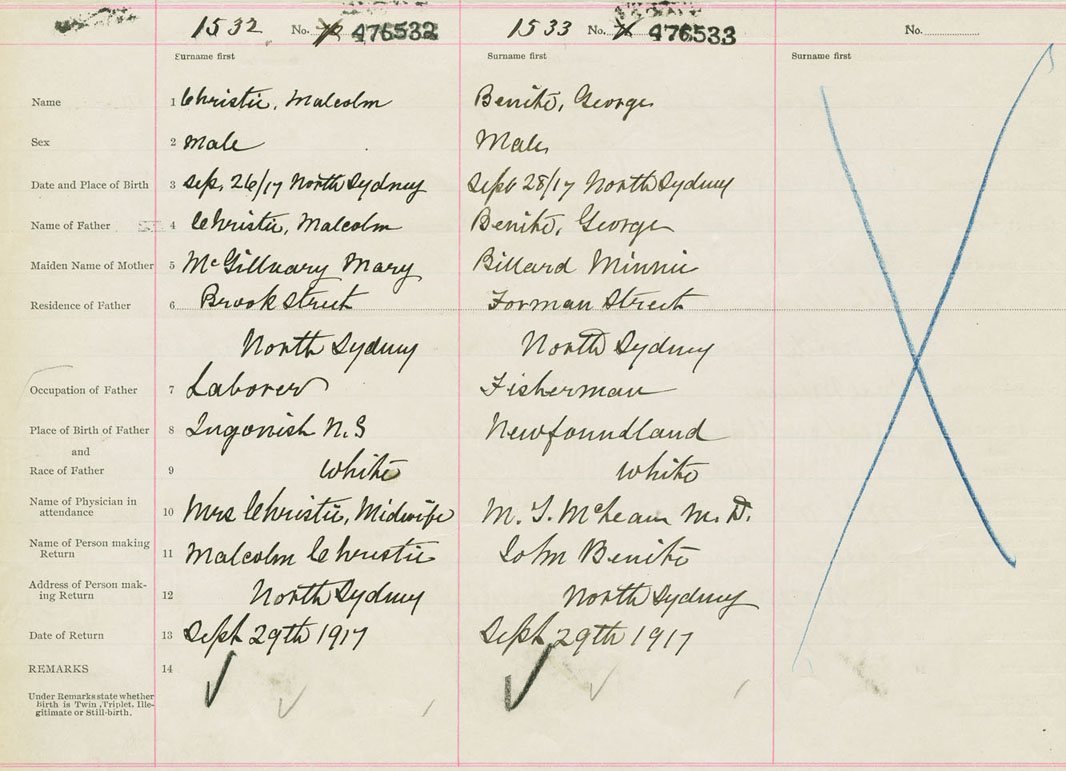 1532 No. 476532 1533 No. 476533 No.
Surname first Surname first Surname first
Name 1 Christie, Malcolm Benito, George
Sex 2 male Male
Date and Place of Birth 3 Sep. 26/17 North Sydney Sept 28/17 North Sydney
Name of Father 4 Christie, Malcolm Benito, George
Maiden Name of Mother 5 McGillvary Mary Billard Minnie
Residence of Father 6 Brook Street Forman Street
North Sydney North Sydney
Occupation of Father 7 Laborer Fisherman
Place of Birth of Father 8 Ingonish N.S Newfoundland
and
Race of Father 9 white white
Name of Physician in
attendance 10 Mrs Christie, Midwife M. T. McLean M.D.
Name of Person making
Return 11 Malcolm Christie John Benito
Address of Person mak-
ing Return 12 North Sydney North Sydney
Date of Return 13 Sept 29th 1917 Sept 29th 1917
REMARKS 14
Under Remarks state whether
birth is Twin, Triplet, Ille-
gitimate or Still-birth.